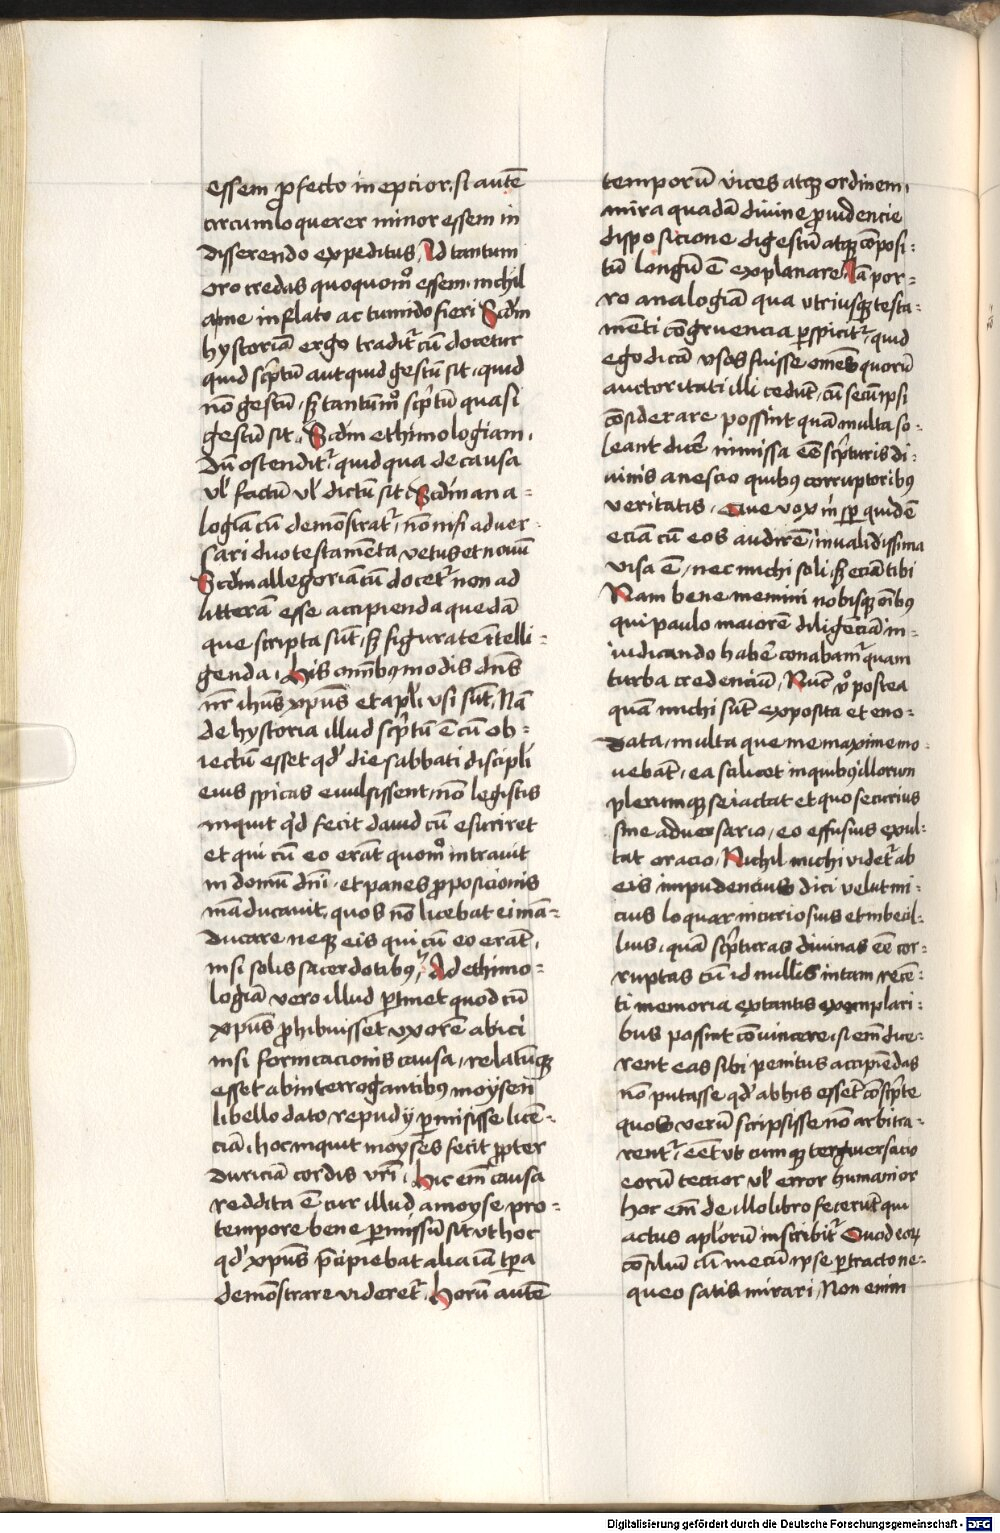 essem ꝓfecto ineptior, si autē
circumloquerer minor essem in
disserendo expeditus, Id tantum
oro credas quoquomͦ essem, nichil
a me inflato ac tumido fieri Scdm̄
hystoriā ergo tradit᷑ cū docetur
quid scp̄tū aut quid gestū sit, quid
nō gestū, sꝫ tantūmͦ scp̄tū quasi
gestū sit, Scdm̄ ethimologiam,
dū ostendit᷑, quid qua de causa
vl̄ factū vl̄ dictū sit, Scdm̄ ana-
logiā cū demōstrat᷑, nō nisi adver-
sari duo testamēta, vetus et nouū
Scdm̄ allegoriā cū docet᷑ non ad
litterā esse accipienda quedā
que scripta sūt, sꝫ figurate ītelli-
genda, his om̄ibꝰ modis dn̄s
nr̄ ihūs xp̄us et apl̄i vsi sūt, Nā
de hystoria illud scp̄tū ē cū ob-
iectū esset qd̓ die sabbati discipli
eius spicas euulsissent, nō legistis
inquit qd̓ fecit dauid cū esuriret
et qui cū eo erāt quomͦ intrauit
in domū dn̄i, et panes ꝓposicionis
māducauit, quos nō licebat ei mā-
ducare neqꝫ eis qui cū eo erāt,
nisi solis sacerdotibꝰ, Ad ethimo-
logiā vero illud ꝑtinet quod cū
xp̄us ꝓhibuisset vxorē abici
nisi fornicacionis causa, relatūqꝫ
esset ab interrogantibus moysen
libello dato repudij ꝑmisisse licē-
ciā, hoc inquit moyses fecit ꝓpter
duriciā cordis vr̄i, hic em̄ causa
reddita ē cur illud a moyse pro-
tempore bene ꝑmissū sit vt hoc
qd̓ xp̄us p̄cipiebat alia iā tp̄a
demōstrare videret᷑, horū autē
temporū vices atqꝫ ordinem,
mira quadā diuine ꝓuidencie
disposicione digestū atqꝫ cōposi-
tū longū ē explanare, Iā por-
ro analogiā qua vtriusqꝫ testa-
mēti cōgruencia ꝑspicit᷑, quid
ego dicā vsos fuisse om̄es quorū
auctoritati illi cedūt, cū secū ipsi
cōsiderare possint quā multa so-
leant dicē inmissa eē scp̄turis di-
uinis a nescio quibꝰ corruptoribꝰ
veritatis, Que vox m̄ sꝑ quidē
eciā cū eos audirē, inualidissima
visa ē, nec michi soli, sꝫ eciā tibi
Nam bene memini nobisqꝫ oībꝰ
qui paulo maiorē diligēciā in-
iudicando habē conabam᷑ quam
turba credenciū, Nūc v̊ postea
quā michi sūt exposita et eno-
data, multa que me maxime mo-
uebāt, ea scilicet in quibꝰ illorum
plerumqꝫ se iactat et quo securius
sine aduersario, eo effusius exul-
tat oracio, Nichil michi videt᷑ ab
eis impudencius dici vel ut mi-
cius loquar incuriosius et inbecil-
lius, quā scp̄turas diuinas eē cor-
ruptas cū id nullis in tam recē-
ti memoria extantis exemplari-
bus possint cōuincere, si em̄ dice-
rent eas sibi penitus accipiēdas
nō putasse qd̓ ab his essēt cōscp̄te
quos verū scripsisse nō arbitra-
rent᷑, eēt vtcumqꝫ tergiuersacio
eorū tectior vl̄ error humanior
hoc em̄ de illo libro fecerūt qui
actus apl̓orū inscribit᷑ Quod eoꝝ
cōsiliū cū mecū ipse ꝑtracto ne-
queo satis mirari, Non enim
Digitalisierung gefördert durch die Deutsche Forschungsgemeinschaft - DFG